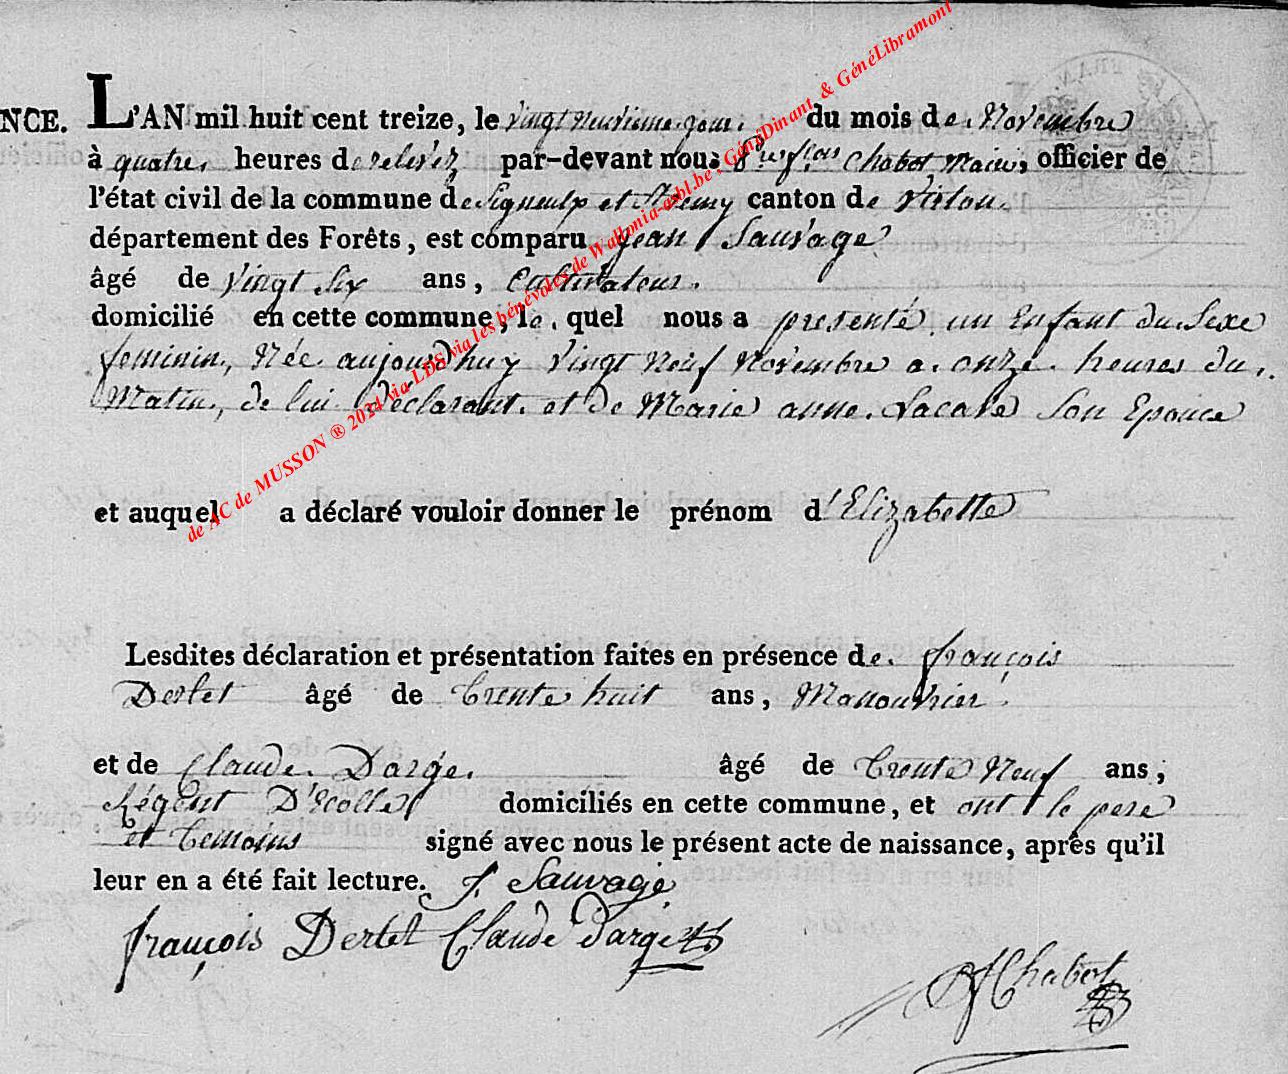 NCE. L'AN mil huit cent treize, le vingt neuvieme jour. du mois de Novembre
à quatre heures de relevéz par-devant nous frs Chabot Maire, officier de
l'état civil de la commune de Signeulx et St remy canton de Virton.
département des Forêts, est comparu Jean Sauvage
âgé de vingt six ans, Cultivateur.
domicilié en cette commune, le quel nous a presenté un Enfant du Sexe
feminin, Née aujourdhuy vingt Neuf Novembre a onze heures du
Matin, de lui declarant et de Marie anne Lacave Son Epouce
et auquel a déclaré vouloir donner le prénom d'Elizabette
Lesdites déclaration et présentation faites en présence de françois
Dertet âgé de trente huit ans, Manouvrier.
et de Claude Dargé. âgé de trente Neuf ans,
Régent D'ecolle domiciliés en cette commune, et ont le pere
et temoins signé avec nous le présent acte de naissance, après qu'il
leur en a été fait lecture. J. Sauvage
françois Dertet Claude dargé
Chabot
de AC de MUSSON ® 2024 via LDS via les bénévoles de Wallonia-asbl.be, GénéDinant & GénéLibramont